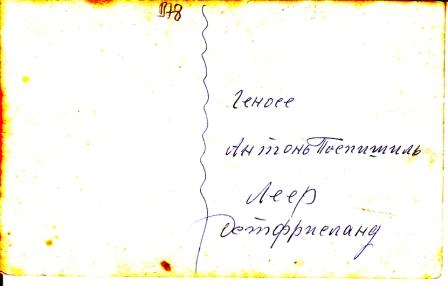 978
Геносе
Антонь Поспишиль
Леер
Остфрисланд